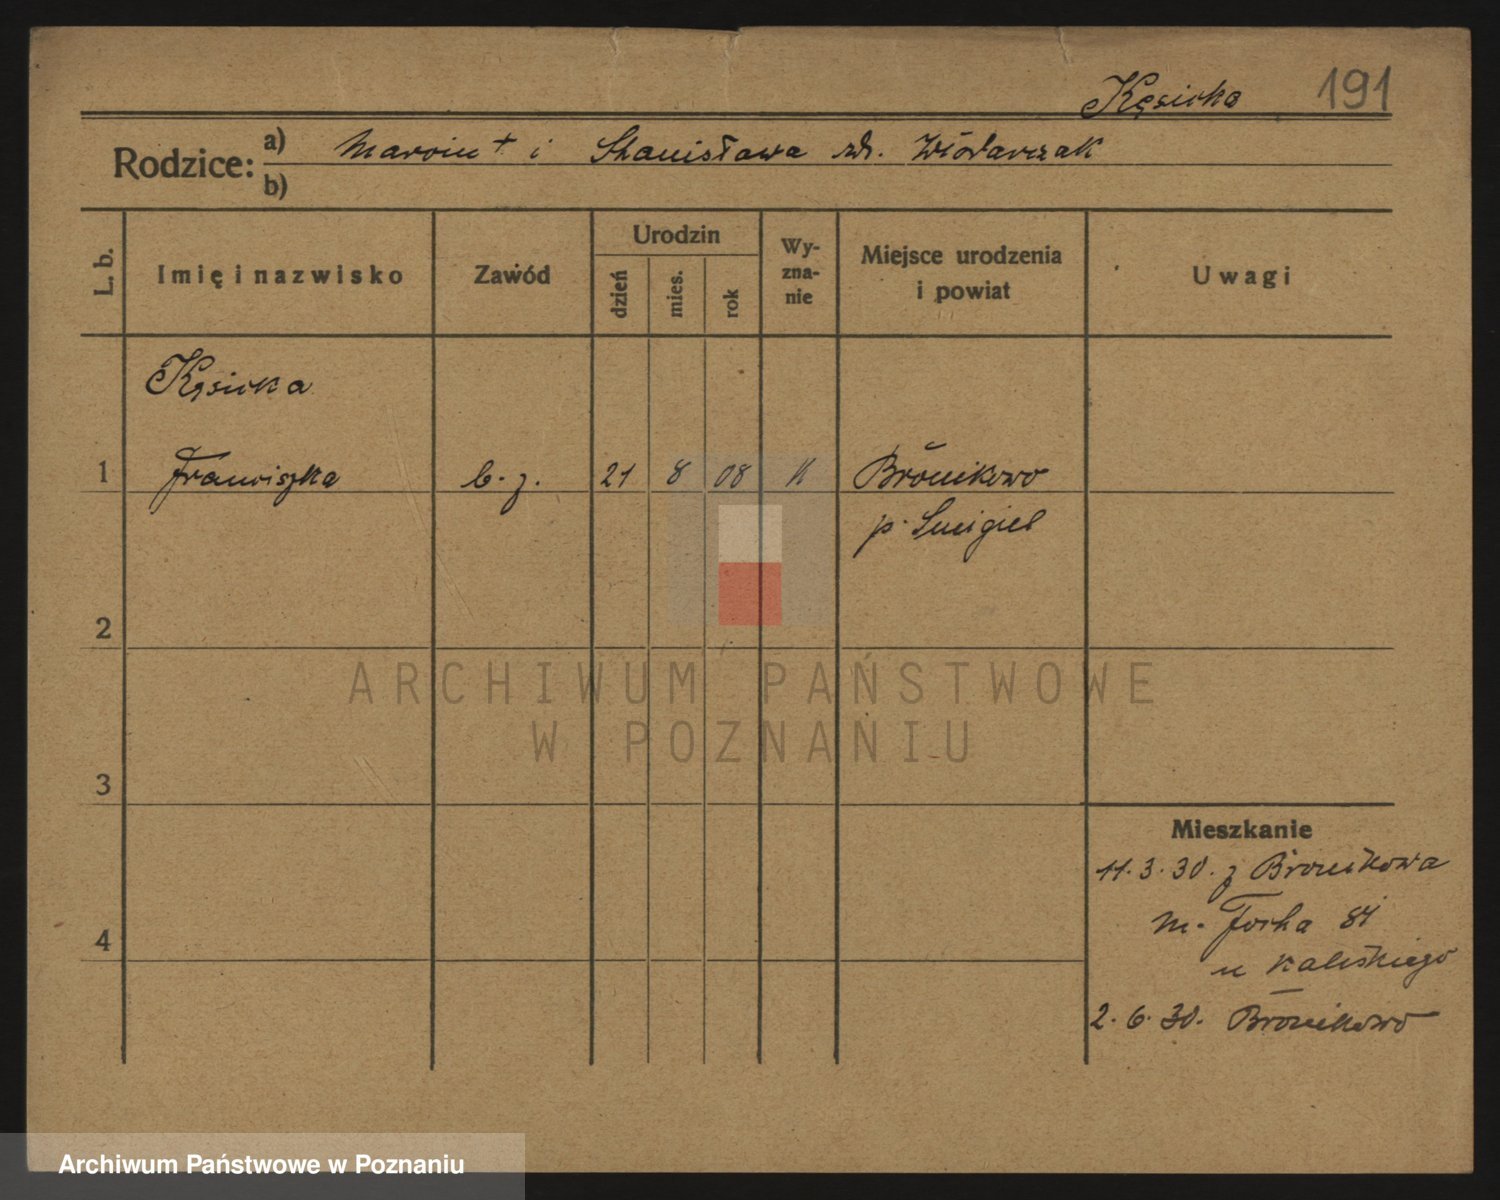 Kęsicka 191
Rodzice: a) Marcin + i Stanisława zd. Włodarczak
b)
L. b. Imię i nazwisko Zawód Urodzin dzień mies. rok Wy-zna-nie Miejsce urodzenia i powiat Uwagi
Kęsicka
1 Franciszka b. z. 21 8 08 K Bronikowo
p. Śmigiel
2
ARCHIWUM PAŃSTWOWE
W POZNANIU
3
Mieszkanie
11.3.30. z Bronikowa
m. Focha 84
4
u Kaliskiego
2.6.30. Bronikowo
Archiwum Państwowe w Poznaniu